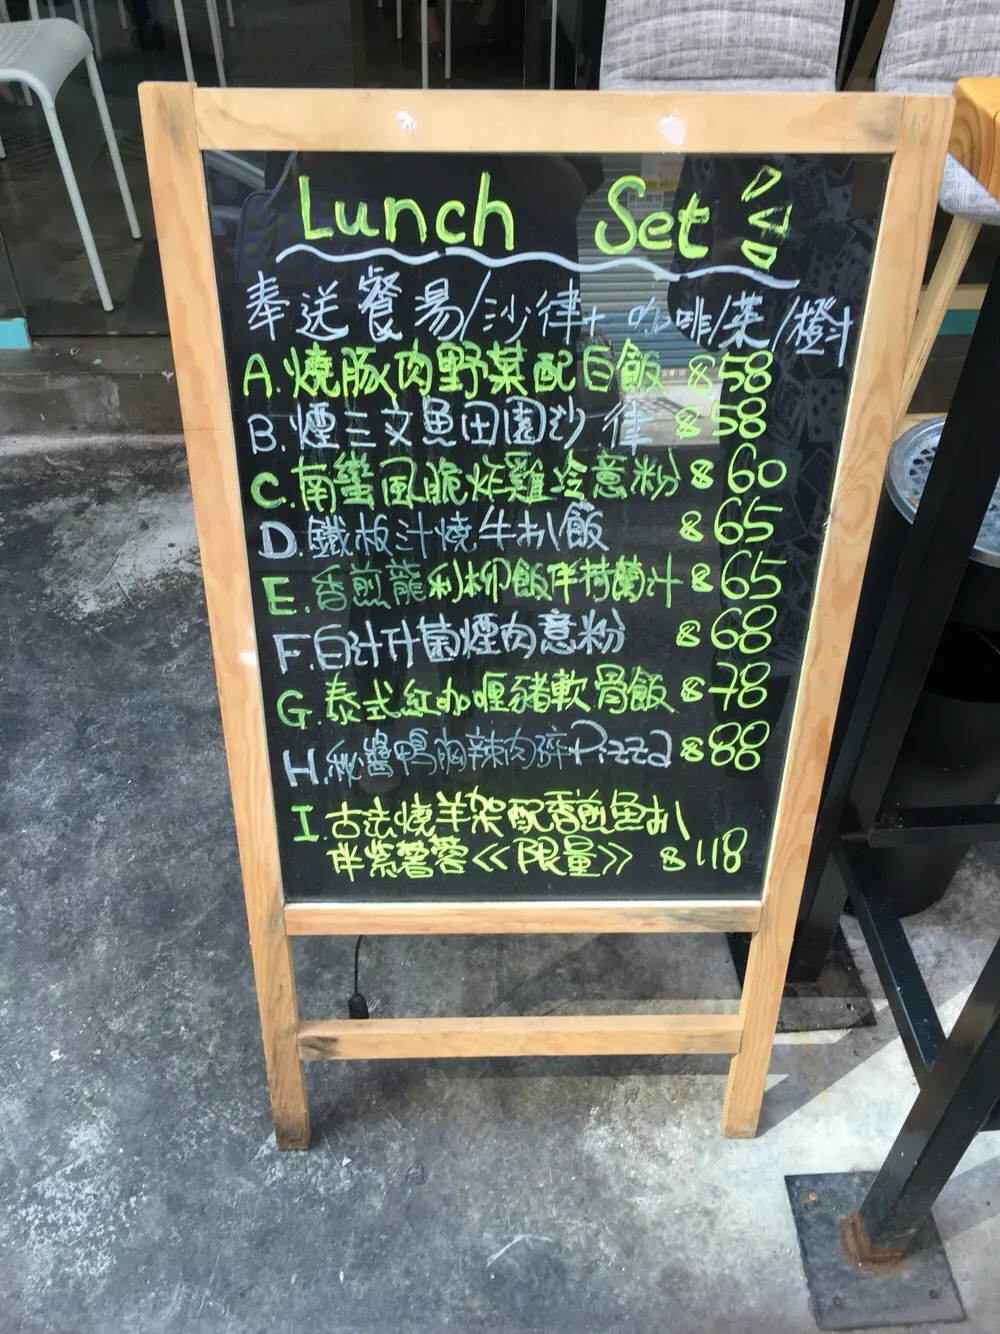 Lunch Set
奉送餐湯/沙律+咖啡/茶/橙汁
A.燒豚肉野菜配白飯 $58
B.煙三文魚田園沙律 $58
C.南蠻風脆炸雞冷意粉 $60
D.鐵板汁燒牛扒飯 $65
E.香煎龍利柳飯伴荷蘭汁 $65
F.白汁什菌煙肉意粉 $68
G.泰式紅咖喱豬軟骨飯 $78
H.秘醬鴨胸辣肉碎Pizza $88
I.古法燒羊架配香煎魚扒
伴紫薯蓉《限量》 $118